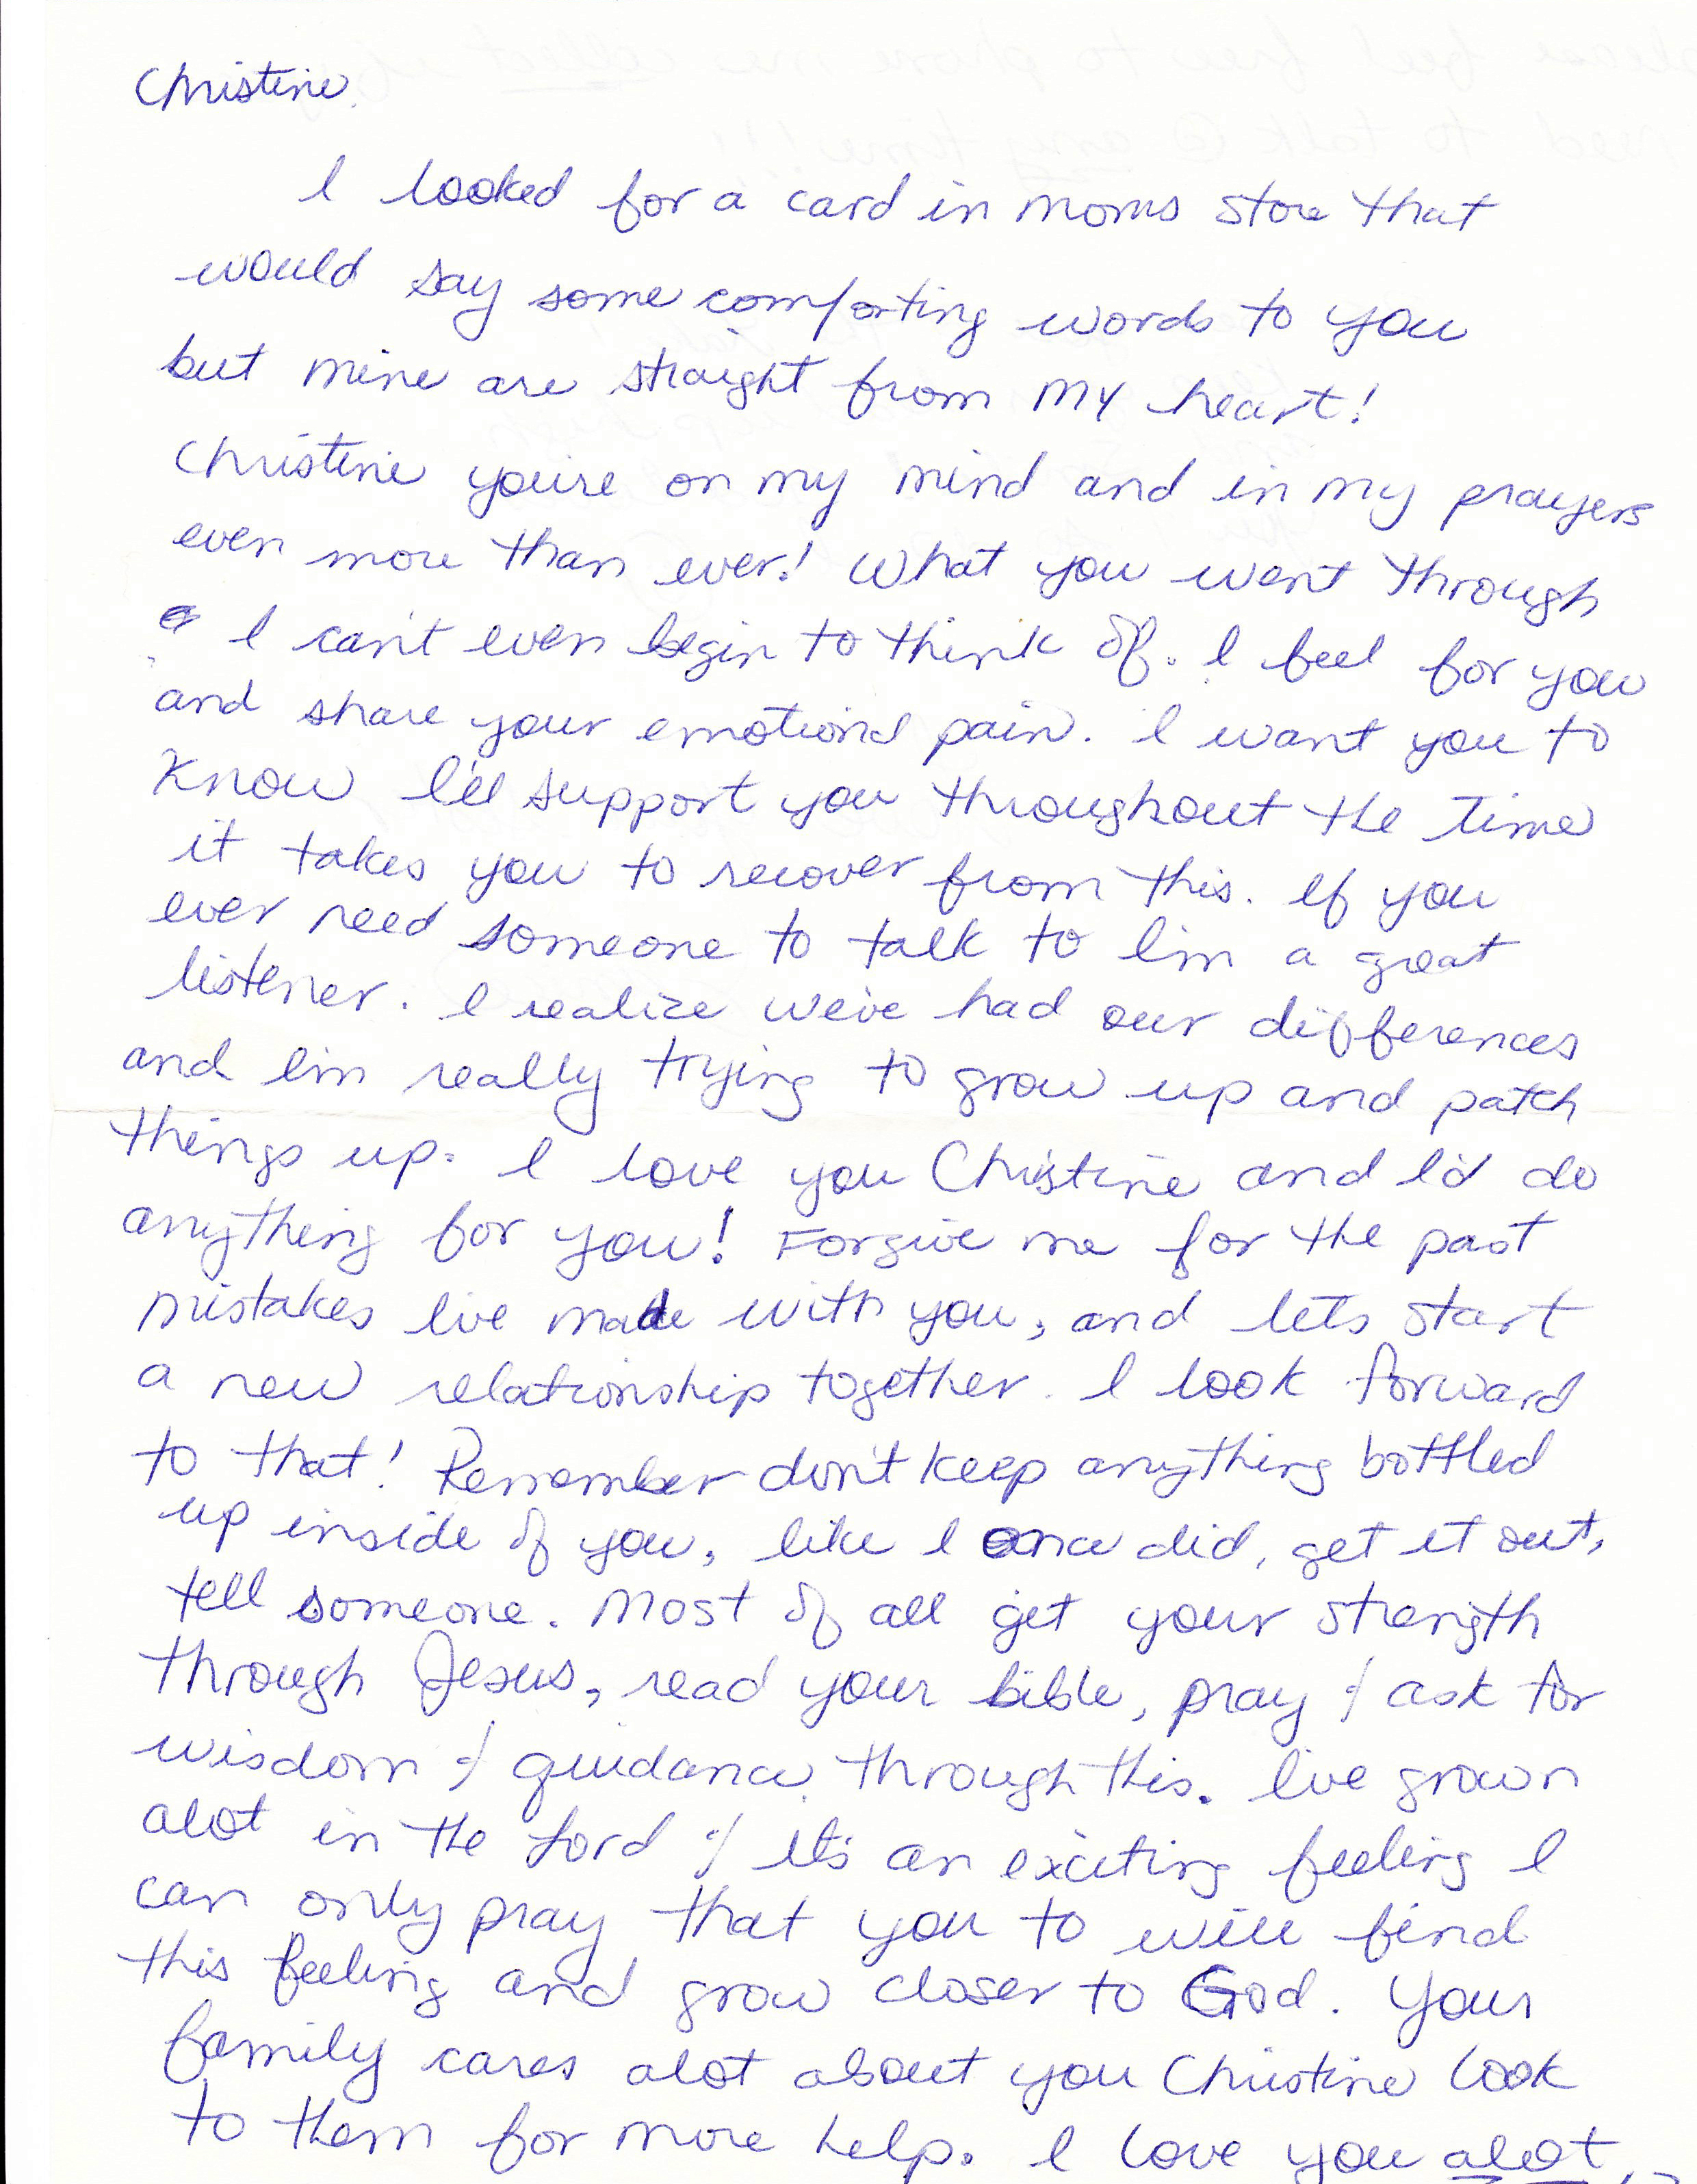 Christine,
I looked for a card in moms store that
would say some comforting words to you
but mine are straight from my heart!
Christine you're on my mind and in my prayers
even more than ever! What you went through
I can't even begin to think of. I feel for you
and share your emotional pain. I want you to
know I'll support you throughout the time
it takes you to recover from this. If you
ever need someone to talk to I'm a great
listener. I realize we've had our differences
and I'm really trying to grow up and patch
things up. I love you Christine and I'd do
anything for you! Forgive me for the past
mistakes I've made with you, and lets start
a new relationship together. I look forward
to that! Remember don't keep anything bottled
up inside of you, like I once did, get it out,
tell someone. Most of all get your strength
through Jesus, read your bible, pray & ask for
wisdom & guidance through this. I've grown
alot in the Lord & it's an exciting feeling I
can only pray that you to will find
this feeling and grow closer to God. Your
family cares alot about you Christine look
to them for more help. I love you alot